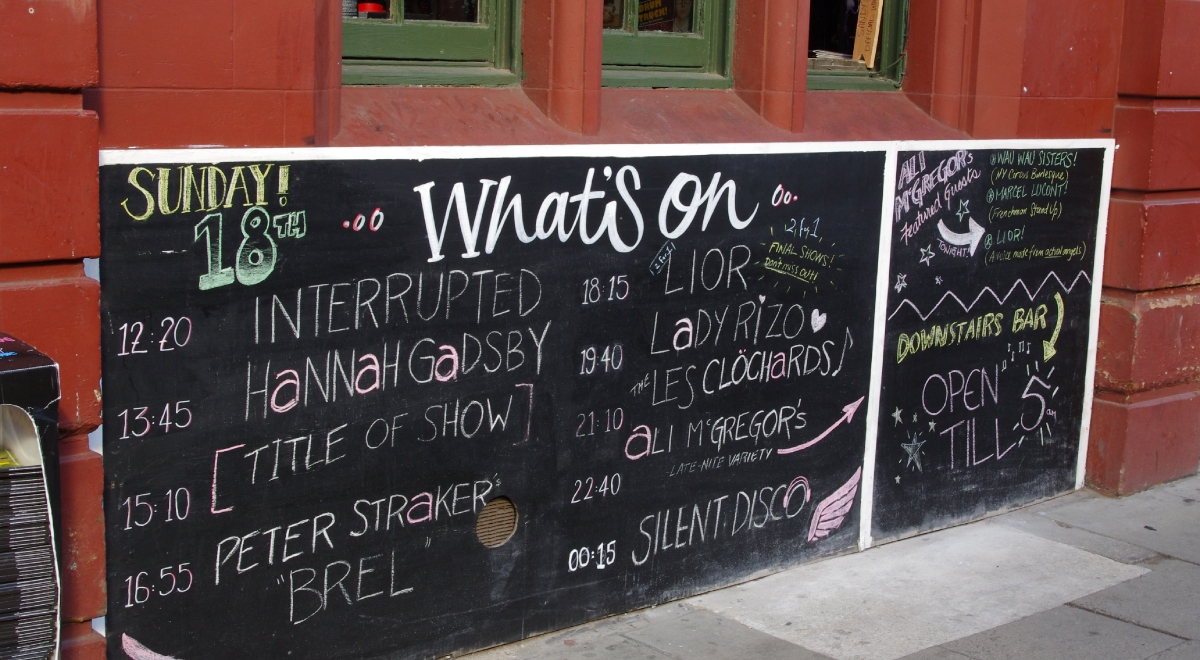 SUNDAY!
18TH
What's on
12:20 INTERRUPTED
13:45 HaNNaH GaDSBY
15:10 [TITLE OF SHOW]
16:55 PETER STRaKER's
"BREL"
2 for 1
FINAL SHOWS!
Don't miss out!
18:15 LIOR
19:40 LaDY RIZO
21:10 THE LES CLÖCHaRDS
22:40 aLI McGREGOR's
LATE-NITE VARIETY
00:15 SILENT DISCO
ALI
McGREGOR's
Featured Guests
TONIGHT!
@ WAU WAU SISTERS!
(NY Circus Burlesque)
@ MARCEL LUCONT!
(Frenchman Stand Up)
@ LIOR!
(A voice made from actual angels)
DOWNSTAIRS BAR
OPEN
TILL 5am